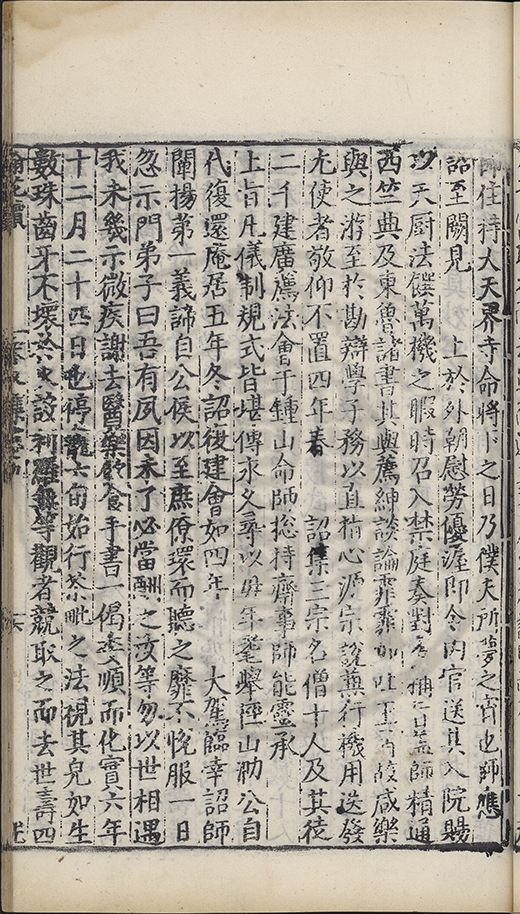 師住持大天界寺命將下之日乃僕夫所夢之宵也師應
詔至闕見 上於外朝慰勞優渥即令內官送其入院賜
以天厨法饌萬機之暇時召入禁庭奏對蓋師精通
西竺典及東魯諸書其與薦紳談論霏霏如吐玉屑故咸樂
與之游至於勘辯學子務以直指心源宗說兼行機用迭發
尤使者敬仰不置四年春 詔集三宗名僧十人及其徒
二千建廣薦法會于鍾山命師總持齋事師能靈承
上旨凡儀制規式皆堪傳永久尋以年耄舉徑山泐公自
代復還庵居五年冬詔復建會如四年 大駕臨幸詔師
闡揚第一義諦自公侯以至庶僚環而聽之靡不悅服一日
忽示門弟子曰吾有夙因未了必當酬之汝等勿以世相遇
我未幾示微疾謝去醫藥飲食手書一偈奕順而化實六年
十二月二十四日也停龕六旬始行茶毗之法視其皃如生
數珠齒牙不壞設利羅等觀者競取之而去世壽四